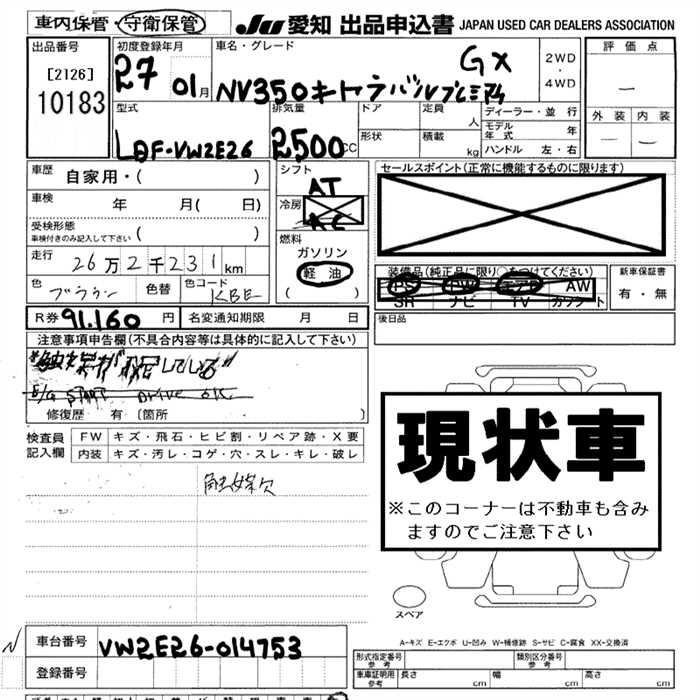 車内保管・守衛保管 JU 愛知 出品申込書 JAPAN USED CAR DEALERS ASSOCIATION
出品番号 初度登録年月 車名・グレード 評価点
[2126] 27 01月 GX 2WD・4WD
10183 NV350キャラバン
型式 排気量 ドア 定員 人 ディーラー・並行 外装 内装
形状 積載 kg モデル年式 年
LDF-VW2E26 2500CC ハンドル 左・右
車歴 自家用・( ) シフト AT セールスポイント(正常に機能するものに限ります)
車検 年 月( 日) 冷房 AC
受検形態 車検付きのみ記入して下さい ( ) 燃料 ガソリン
走行 26万2千231km 軽油 装備品(純正品に限り○をつけてください) 新車保証書
色 ブラウン 色替 色コード KBE ( ) PS PW エアB AW 有・無
SR ナビ TV カワシート
R券 91,160円 名変通知期限 月 日 後日品
注意事項申告欄(不具合内容等は具体的に記入して下さい)
E/G START DRIVE OK
修復歴 有 〔箇所
検査員記入欄 FW キズ・飛石・ヒビ割・リペア跡・X要
内装 キズ・汚レ・コゲ・穴・スレ・キレ・破レ
現状車
※このコーナーは不動車も含みますのでご注意下さい
スペア
A-キズ E-エクボ U-凹み W-補修跡 S-サビ C-腐食 XX-交換済
車台番号 VW2E26-014753 形式指定番号 参考 類別区分番号 参考
登録番号 車庫証明用 参考 長さ cm 幅 cm 高さ cm